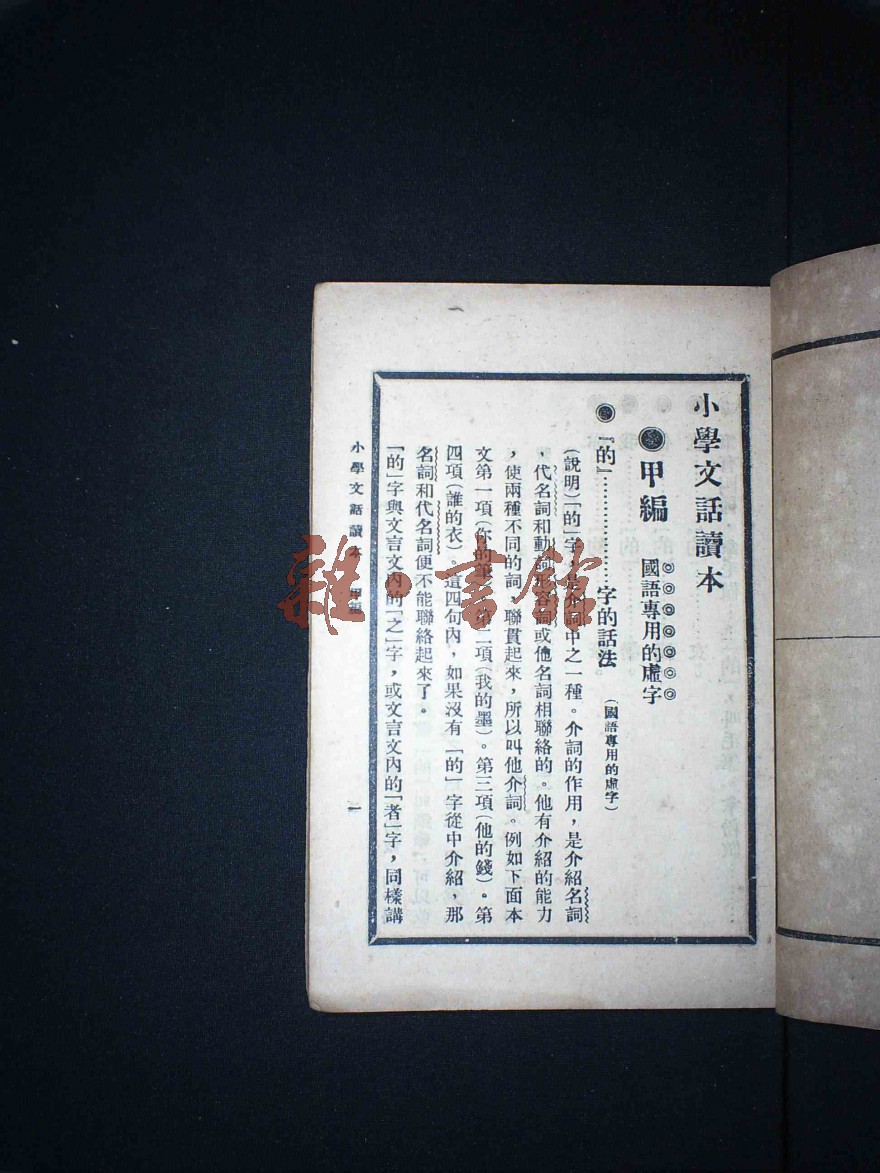 小學文話讀本
甲編 國語專用的虛字
「的」……………字的話法 (國語專用的虛字)
(說明)「的」字是介詞中之一種。介詞的作用,是介紹名詞
,代名詞和動詞形容詞或他名詞相聯絡的。他有介紹的能力
,使兩種不同的詞,聯貫起來,所以叫他介詞。例如下面本
文第一項(你的筆)第二項(我的墨)。第三項(他的錢)。第
四項(誰的衣)。這四句內,如果沒有「的」字從中介紹,那
名詞和代名詞便不能聯絡起來了。
「的」字與文言文內的「之」字,或文言文內的「者」字,同樣講
小學文話讀本 甲編 一
雜·書館